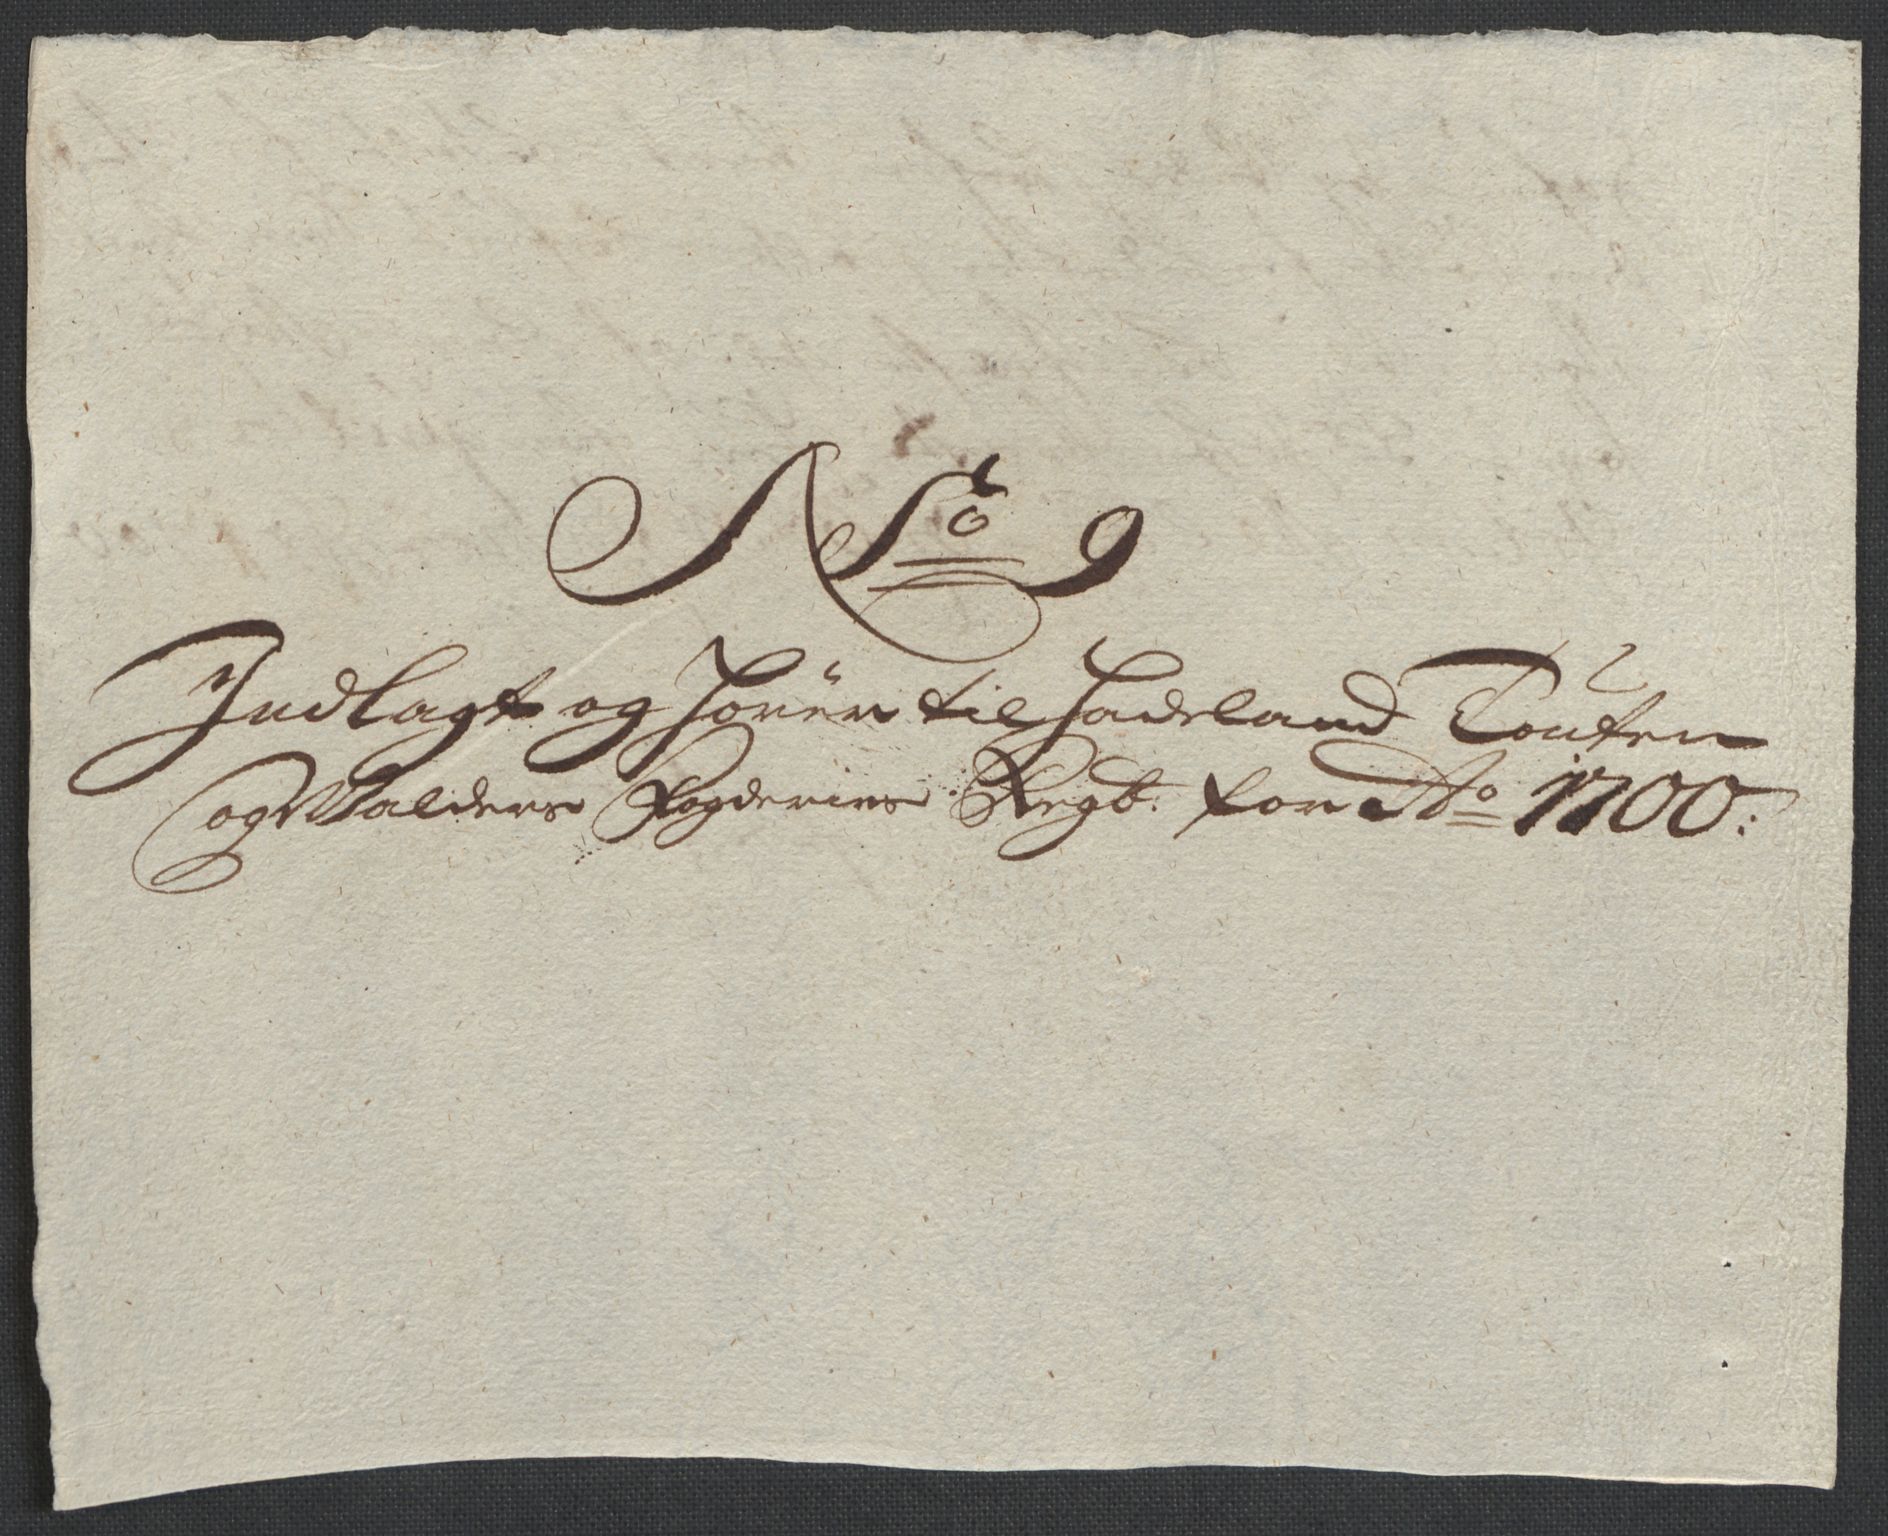 No 9
Indlagt og hörer til Hadeland Touten
og Walders Fogderies Regb: for Ao 1700: